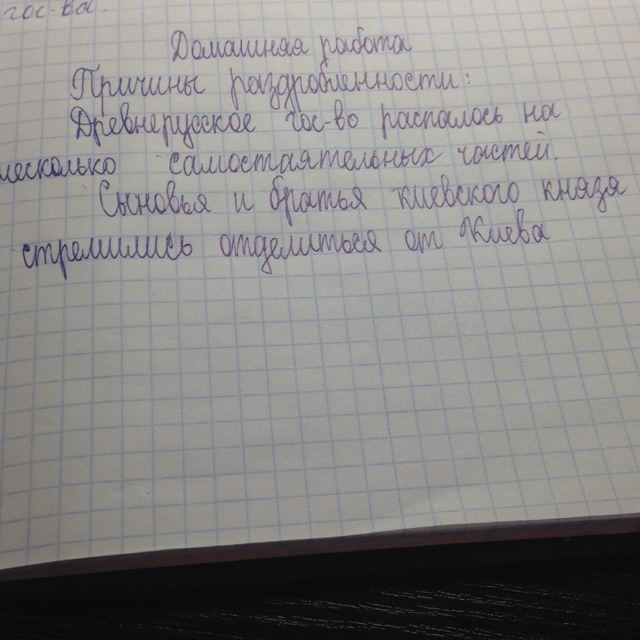 гос-ва.
Домашняя работа
Причины раздробленности:
Древнерусское гос-во распалось на
несколько самостоятельных частей.
Сыновья и братья киевского князя
стремились отделиться от Киева